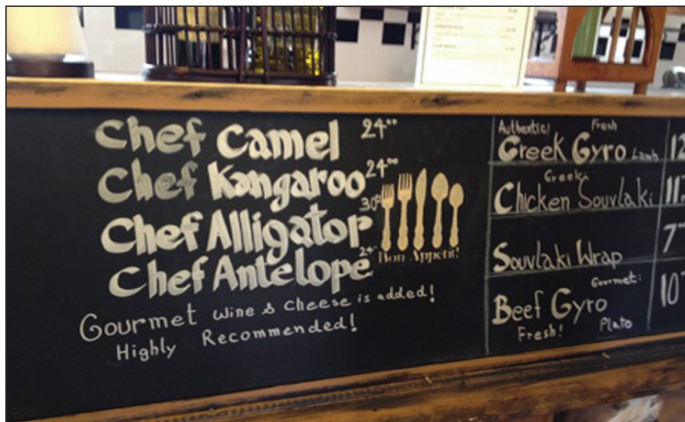 Chef Camel 24⁰⁰
Chef Kangaroo 24⁰⁰
Chef Alligator 30⁰⁰
Chef Antelope 24⁰⁰
Bon Appétit!
Gourmet Wine & Cheese is added!
Highly Recommended!
Fresh
Greek Gyro Lamb
Greek
Chicken Souvlaki
Souvlaki Wrap 7
Gourmet:
Beef Gyro 10
Fresh! Plato